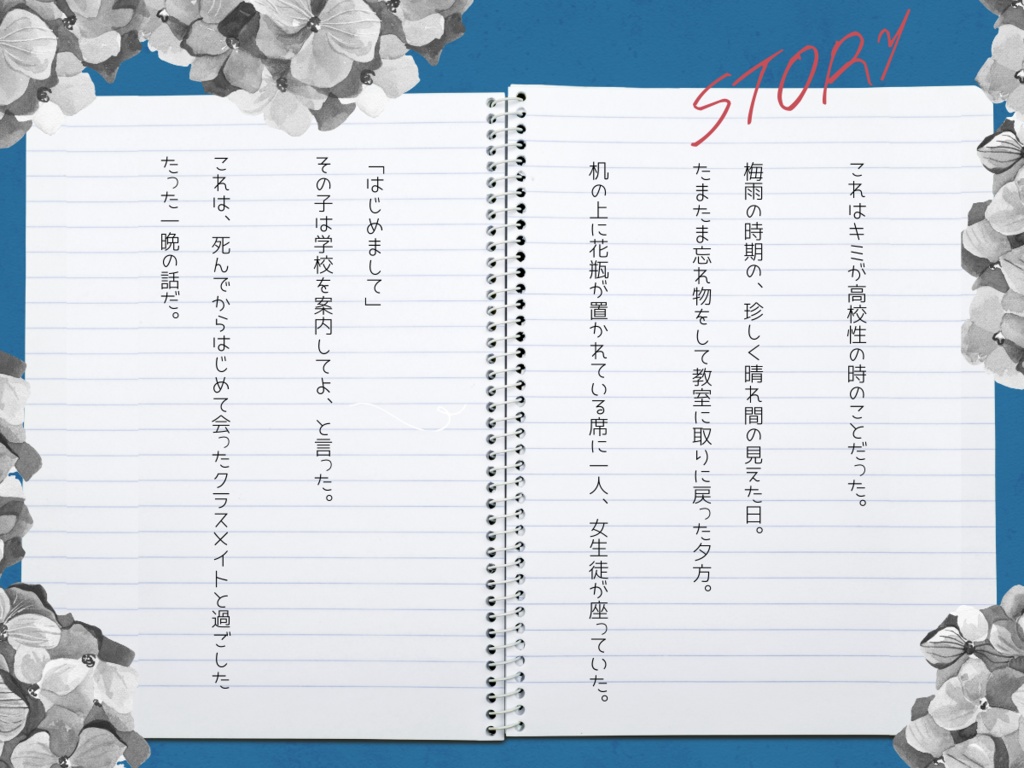 STORY
これはキミが高校性の時のことだった。
梅雨の時期の、珍しく晴れ間の見えた日。
たまたま忘れ物をして教室に取りに戻った夕方。
机の上に花瓶が置かれている席に一人、女生徒が座っていた。
「はじめまして」
その子は学校を案内してよ、と言った。
これは、死んでからはじめて会ったクラスメイトと過ごした
たった一晩の話だ。